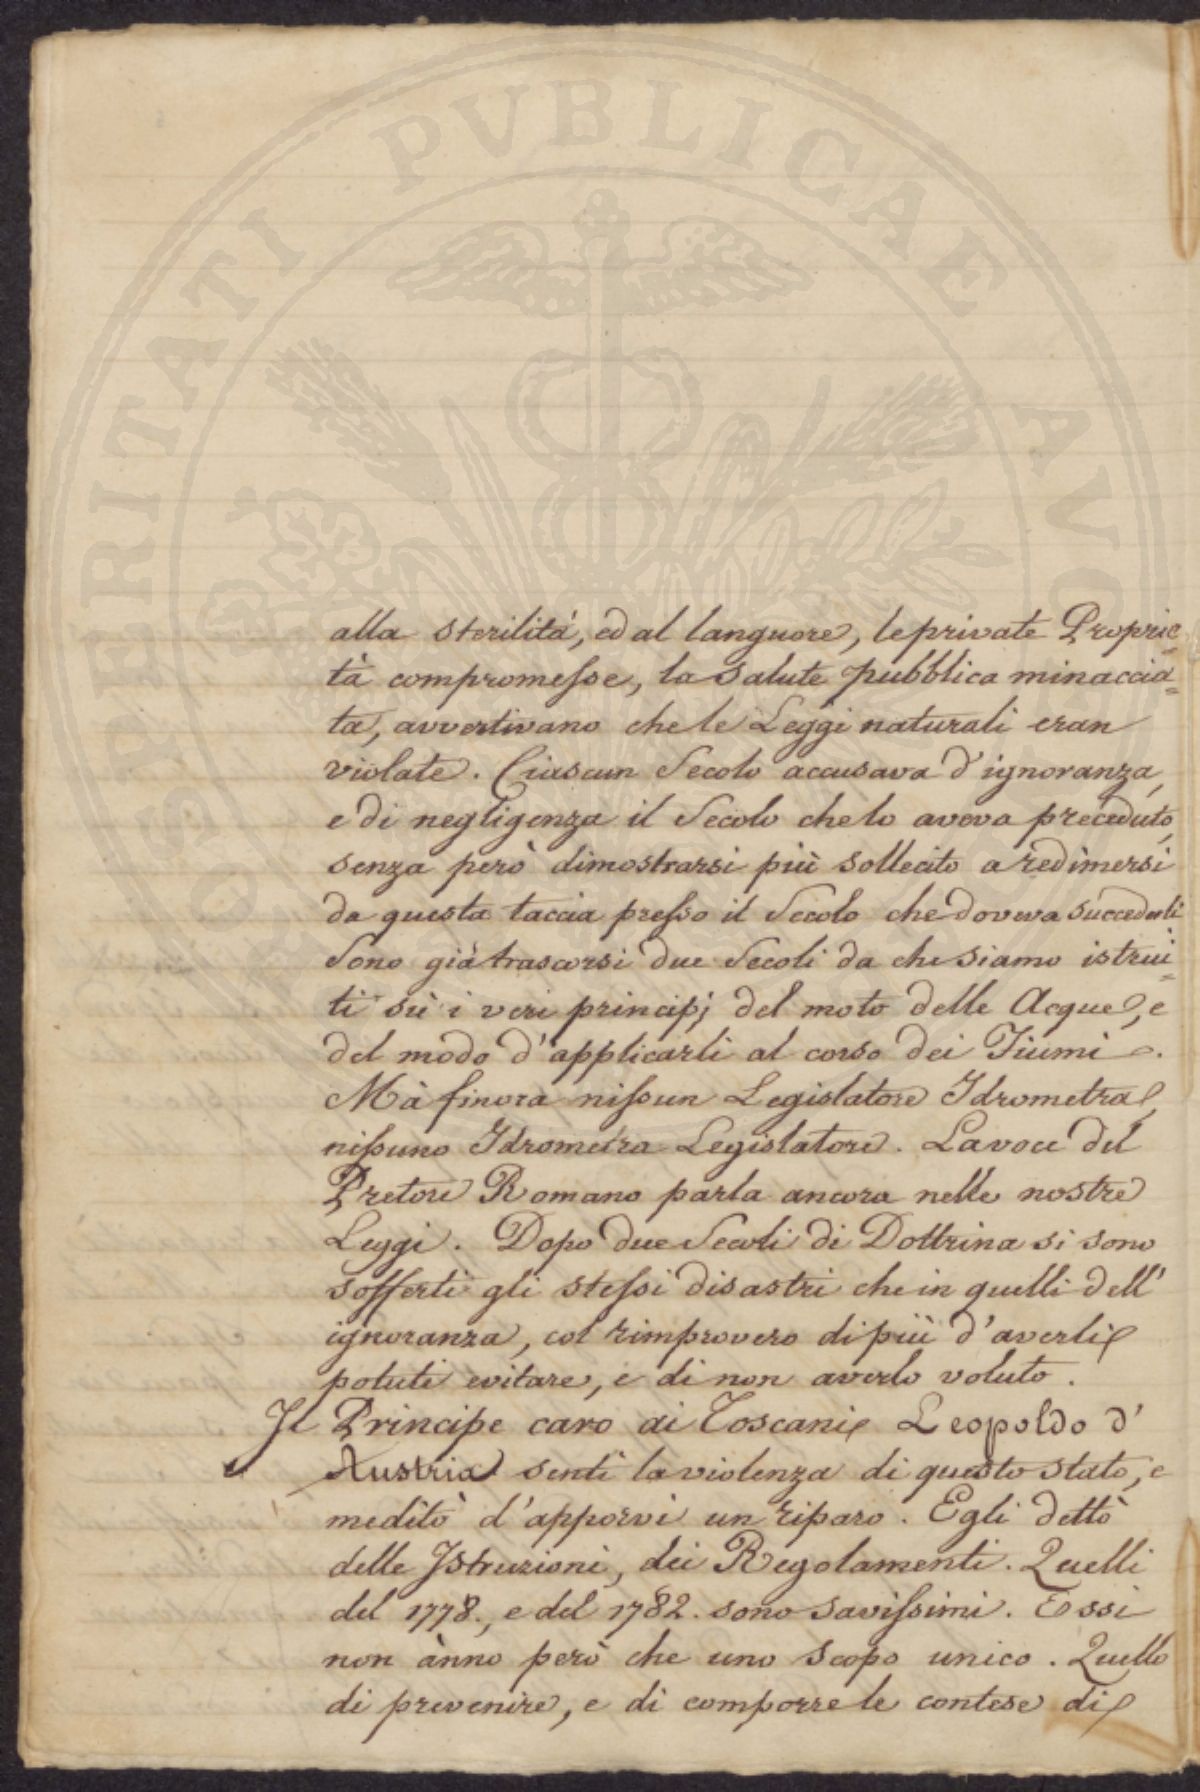 PROSPERITATI PVBLICAE AVG
alla sterilità, ed al languore, le private Proprie=
tà compromesse, la salute pubblica minaccia=
ta, avvertivano che le Leggi naturali eran
violate. Ciascun Secolo accusava d'ignoranza,
e di negligenza il Secolo che lo aveva preceduto,
senza però dimostrarsi più sollecito a redimersi
da questa taccia presso il Secolo che doveva succederli
Sono già trascorsi due Secoli da che siamo istrui=
ti sù i veri principj del moto delle Acque, e
del modo d'applicarli al corso dei Fiumi.
Mà finora nissun Legislatore Idrometra,
nissuno Idrometra Legislatore. La voce del
Pretore Romano parla ancora nelle nostre
Leggi. Dopo due Secoli di Dottrina si sono
sofferti gli stessi disastri che in quelli dell'
ignoranza, col rimprovero di più d'averli
potuti evitare, e di non averlo voluto.
Il Principe caro ai Toscani Leopoldo d'
Austria sentì la violenza di questo stato, e
meditò d'apporvi un riparo. Egli dettò
delle Istruzioni, dei Regolamenti. Quelli
del 1778., e del 1782. sono savissimi. Essi
non ànno però che uno scopo unico. Quello
di prevenire, e di comporre le contese di